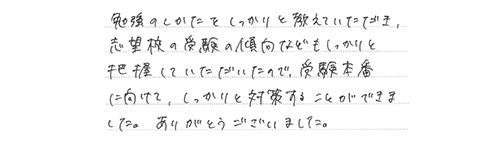 勉強のしかたをしっかりと教えていただき、
志望校の受験の傾向などもしっかりと
把握していただいたので、受験本番
に向けて、しっかりと対策することができま
した。ありがとうございました。